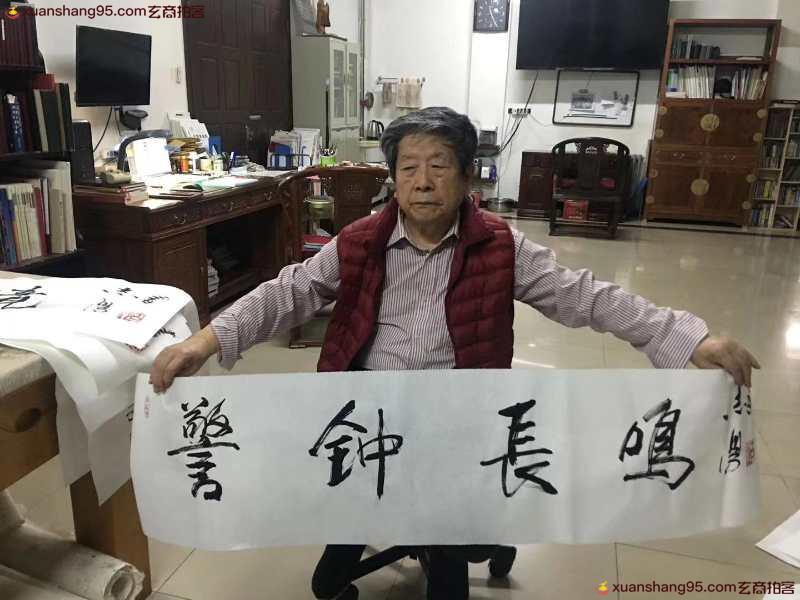 xuanshang95.com玄商拍客
警鐘長鳴
xuanshang95.com玄商拍客